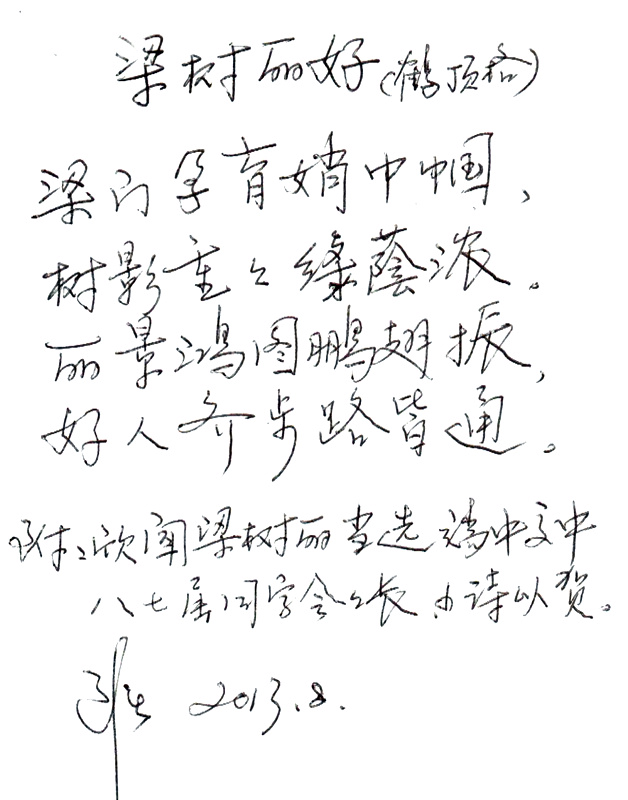 梁树丽好(鹤顶格)
梁门孕育娋巾帼,
树影重々绿蔭浓。
丽景鸿图鹏翅振,
好人齐步路皆通。
附:欣闻梁树丽当选端中中
八七届同学会々长,小诗以贺。
2013.8.